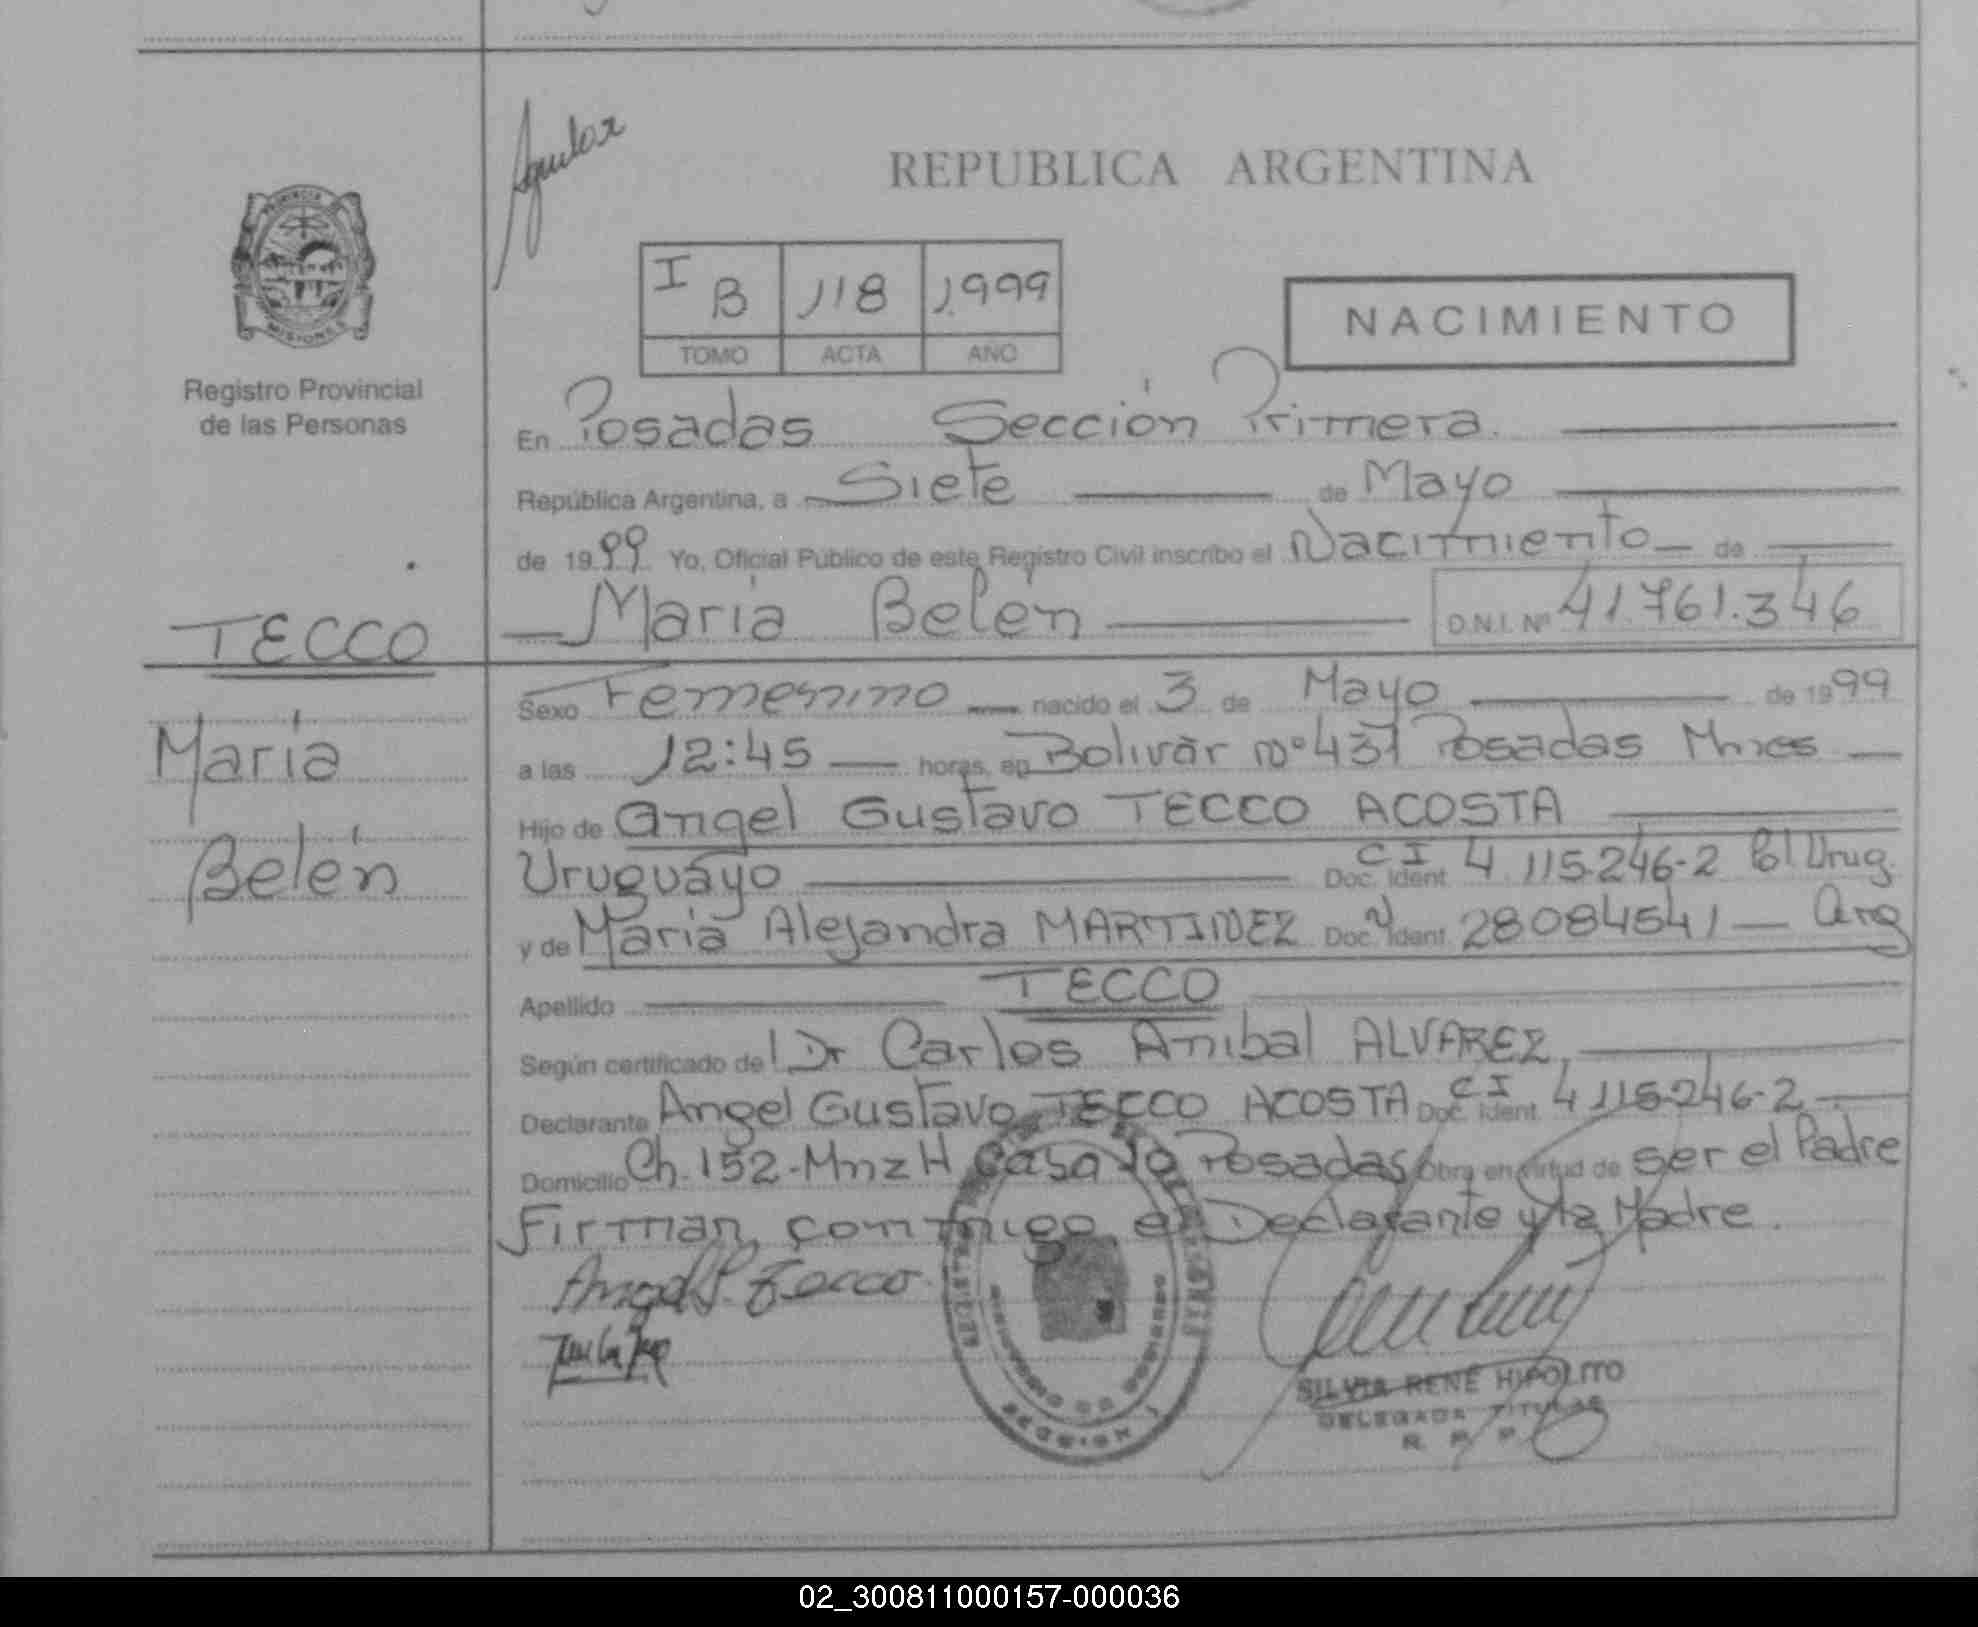 Aguilar
REPUBLICA ARGENTINA
PROVINCIA
MISIONES
I B 118 1.999
TOMO ACTA AÑO
NACIMIENTO
Registro Provincial
de las Personas
En Posadas Sección Primera.
República Argentina, a Siete de Mayo
de 1999 Yo, Oficial Público de este Registro Civil inscribo el Nacimiento de
María Belén D.N.I. Nº 41.761.346
TECCO
María
Belén
Sexo Femenino nacido el 3 de Mayo de 1999
a las 12:45 horas, en Bolivar nº 437 Posadas Mnes
Hijo de Angel Gustavo TECCO ACOSTA
Uruguayo Doc. Ident. C I 4 115.246-2 Pol Urug.
y de María Alejandra MARTINEZ Doc. Ident. 28084541 Arg
Apellido TECCO
Según certificado del Dr Carlos Anibal ALVAREZ,
Declarante Angel Gustavo TECCO ACOSTA Doc. Ident. C I 4 115.246-2
Domicilio Ch. 152 - Mnz H Casa Posadas Obra en virtud de ser el Padre
Firman conmigo el Declarante y la Madre.
Angel G. Tecco
SILVIA RENÉ HIPOLITO
DELEGADA TITULAR
R. P. P.
02_300811000157-000036